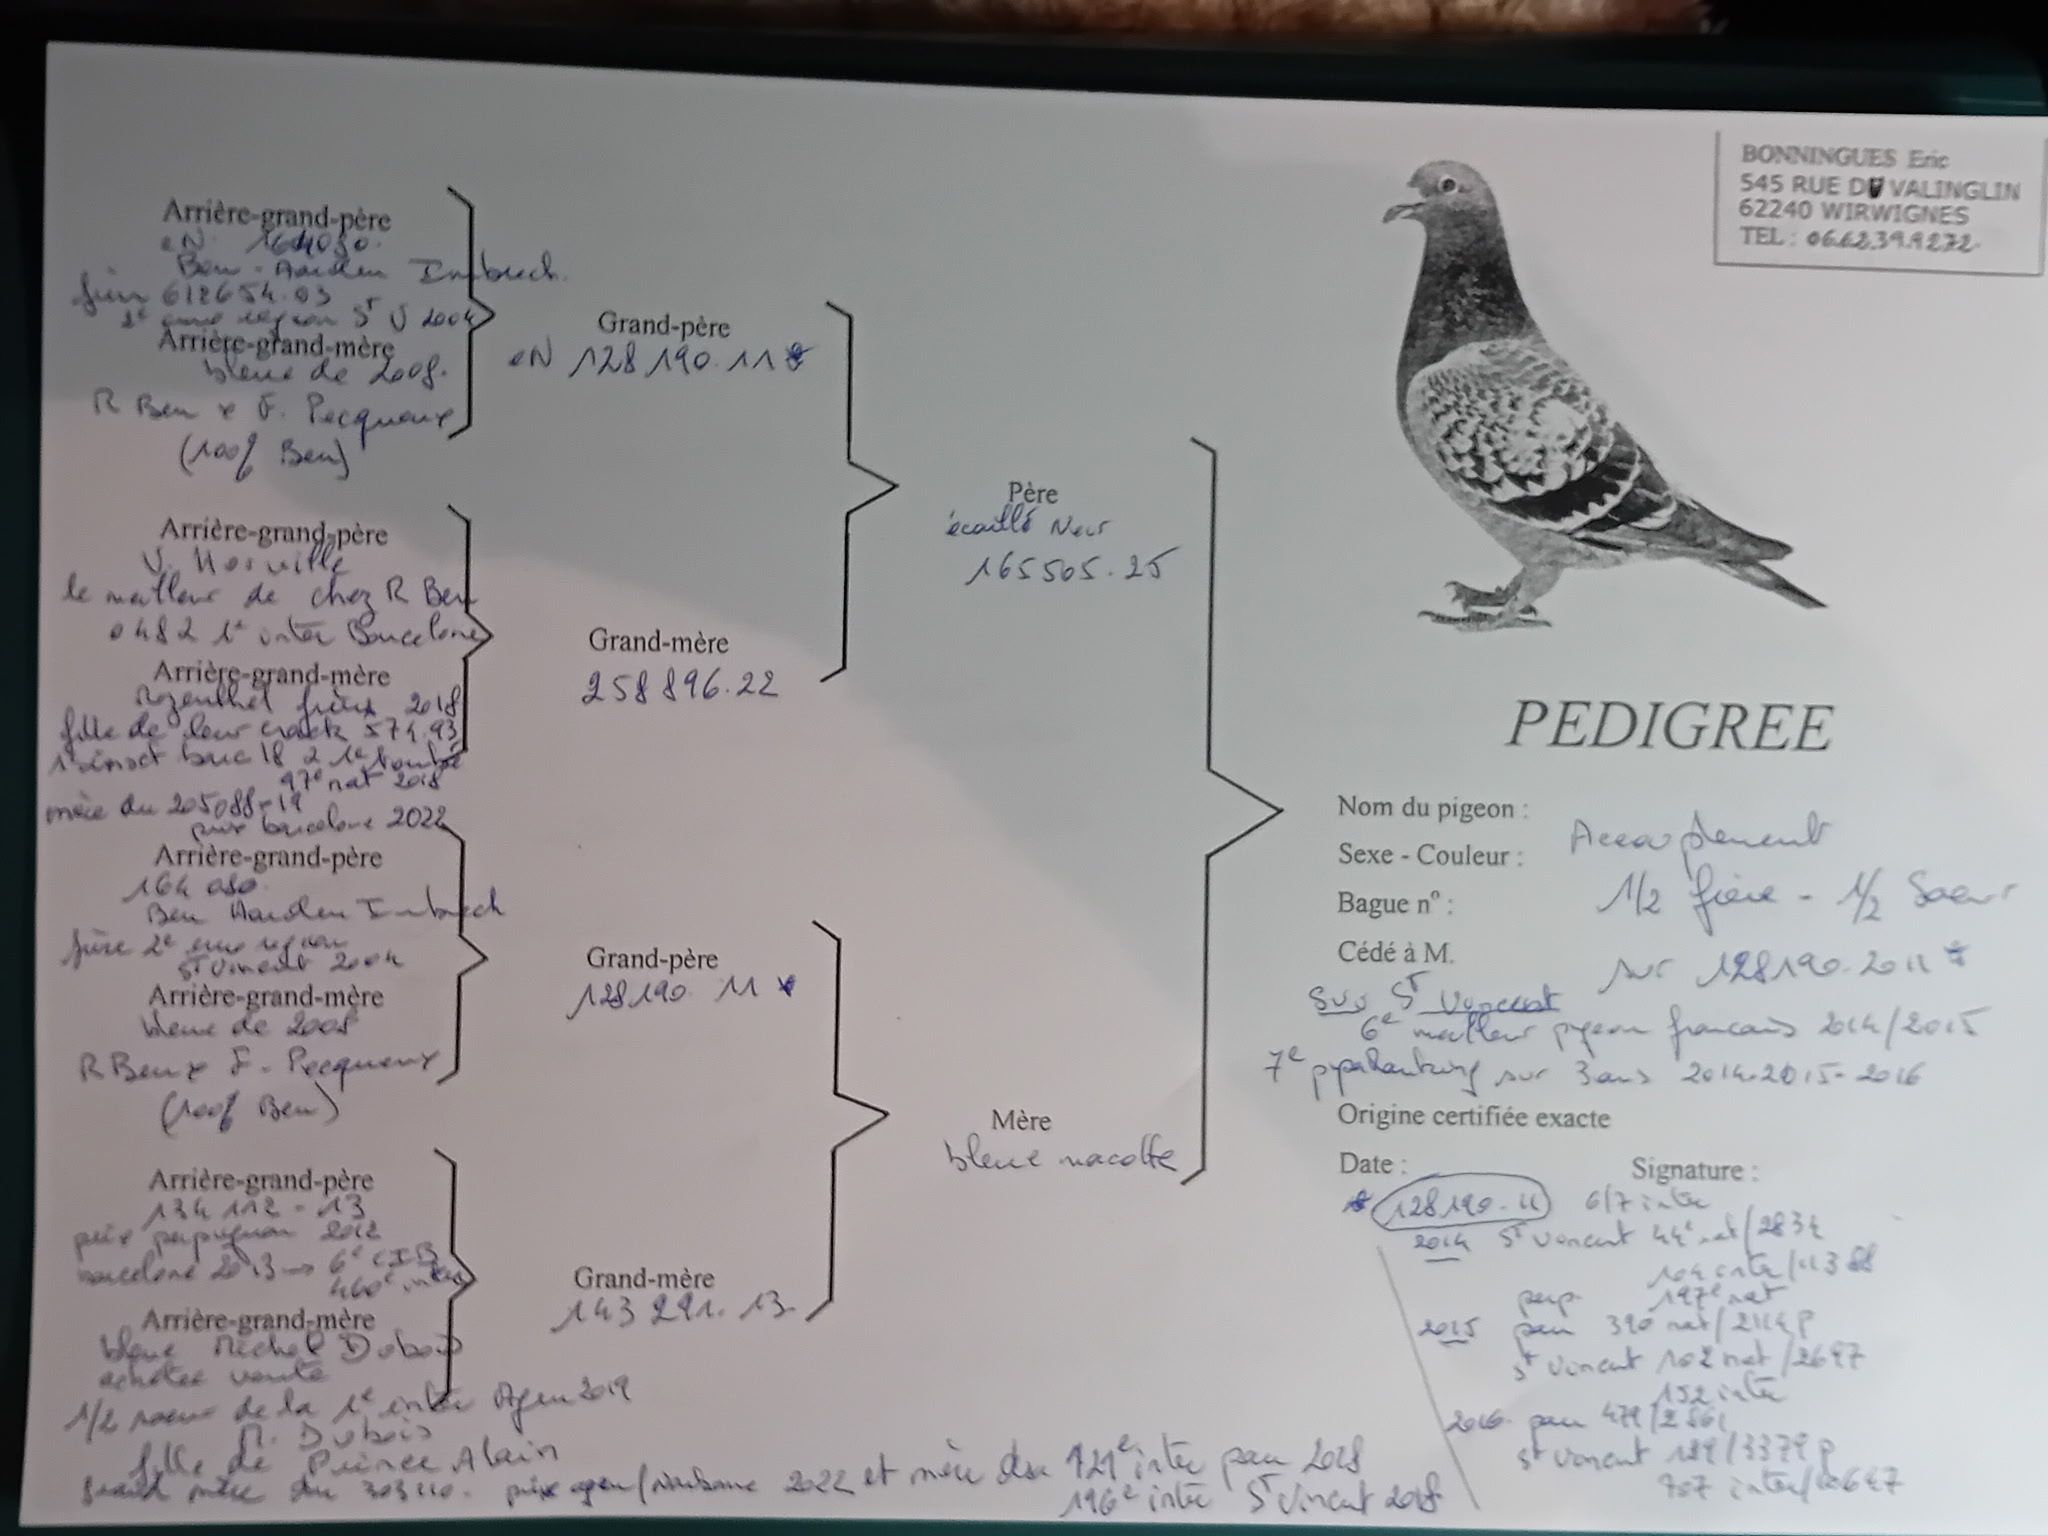 BONNINGUES Eric
545 RUE DU VALINGLIN
62240 WIRWIGNES
TEL : 06.62.39.92.72
Arrière-grand-père
eN 164080.
Ben - Aarden Imbrech.
frère 612654.03
2e ème région St V 2004
Arrière-grand-mère
bleue de 2008.
R Ben x F. Pecqueux
(100% Ben)
Grand-père
eN 128190.11 *
Arrière-grand-père
V. Horville
le meilleur de chez R Ben
0482 1e inter Barcelone
Arrière-grand-mère
Rozenthel frères 2018
fille de leur crack 574.93
1 insct barc 18 2 1e
97e nat 2018
mère du 205088-19
prix barcelone 2022
Grand-mère
258896.22
Père
écaillé Noir
165505.25
Arrière-grand-père
164080.
Ben Aarden Imbrech
frère 2e région
St Vincent 2004
Arrière-grand-mère
bleue de 2008
R Ben x F. Pecqueux
(100% Ben)
Grand-père
128190 11 *
Arrière-grand-père
134112-13
prix perpignan 2012
barcelone 2013 → 6e CIB
460e inter
Arrière-grand-mère
bleue Michel Dubois
achetée vente
1/2 soeur de la 1e inter Agen 2019
M. Dubois
fille de Prince Alain
grand mère du 303110. prix agen/Narbonne 2022 et mère du 121e inter pau 2018
196e inter St Vincent 2018
Grand-mère
143291.13
Mère
bleue macotte
PEDIGREE
Nom du pigeon :
Accouplement
Sexe - Couleur :
1/2 frère - 1/2 Soeur
Bague n° :
Cédé à M.
sur 128190.2011 *
Sur St Vincent
6e meilleur pigeon francais 2014/2015
7e pipaRanking sur 3 ans 2014-2015-2016
Origine certifiée exacte
Date :
Signature :
* 128190.11 6/7 inter
2014 St Vincent 44e nat/2834
104 inter/11388
perp 197e nat
2015 pau 390 nat/2114 P
St Vincent 102 nat/2697
152 inter
2016 pau 479/2861
St Vincent 189/3379 P
707 inter/